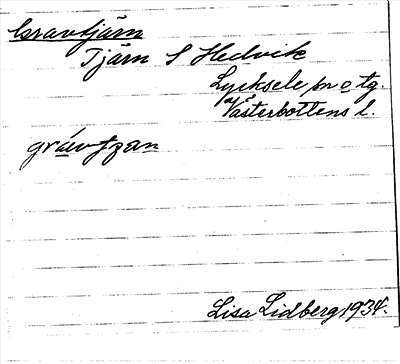 Gravtjärn
Tjärn S Hedvik
Lycksele sn o tg.
Västerbottens l.
grávtzan
Lisa Lidberg 1934.